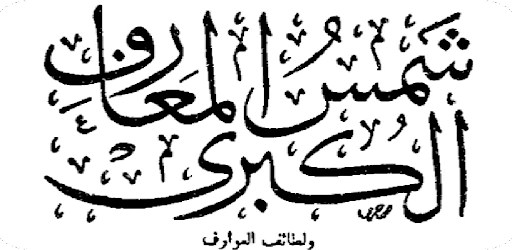 شَمسُ المَعَارِف
الكُبرى
ولطائف العوارف